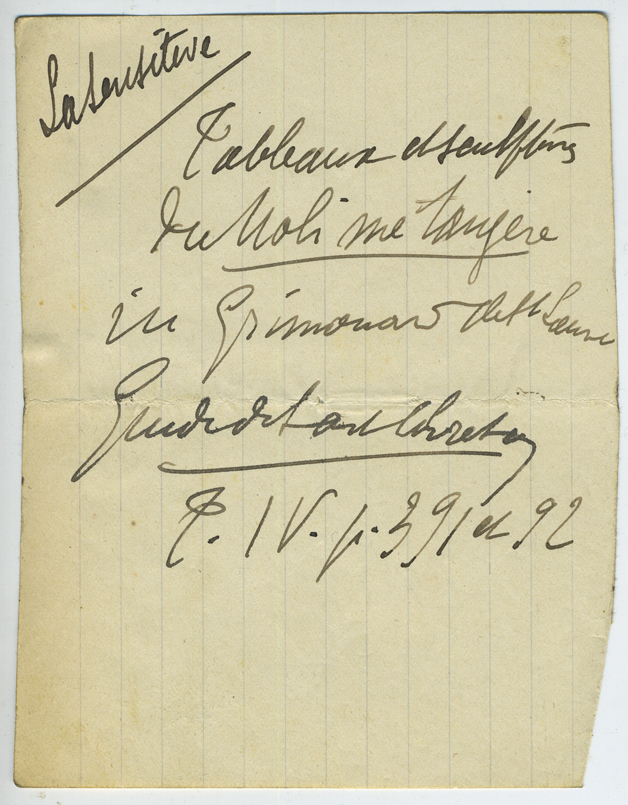 La Sensitive
Tableaux et sculptures
du Noli me tangere
in Grimouard de St Laurent
Guide de l'art chrétien
T. IV. p. 391 et 92